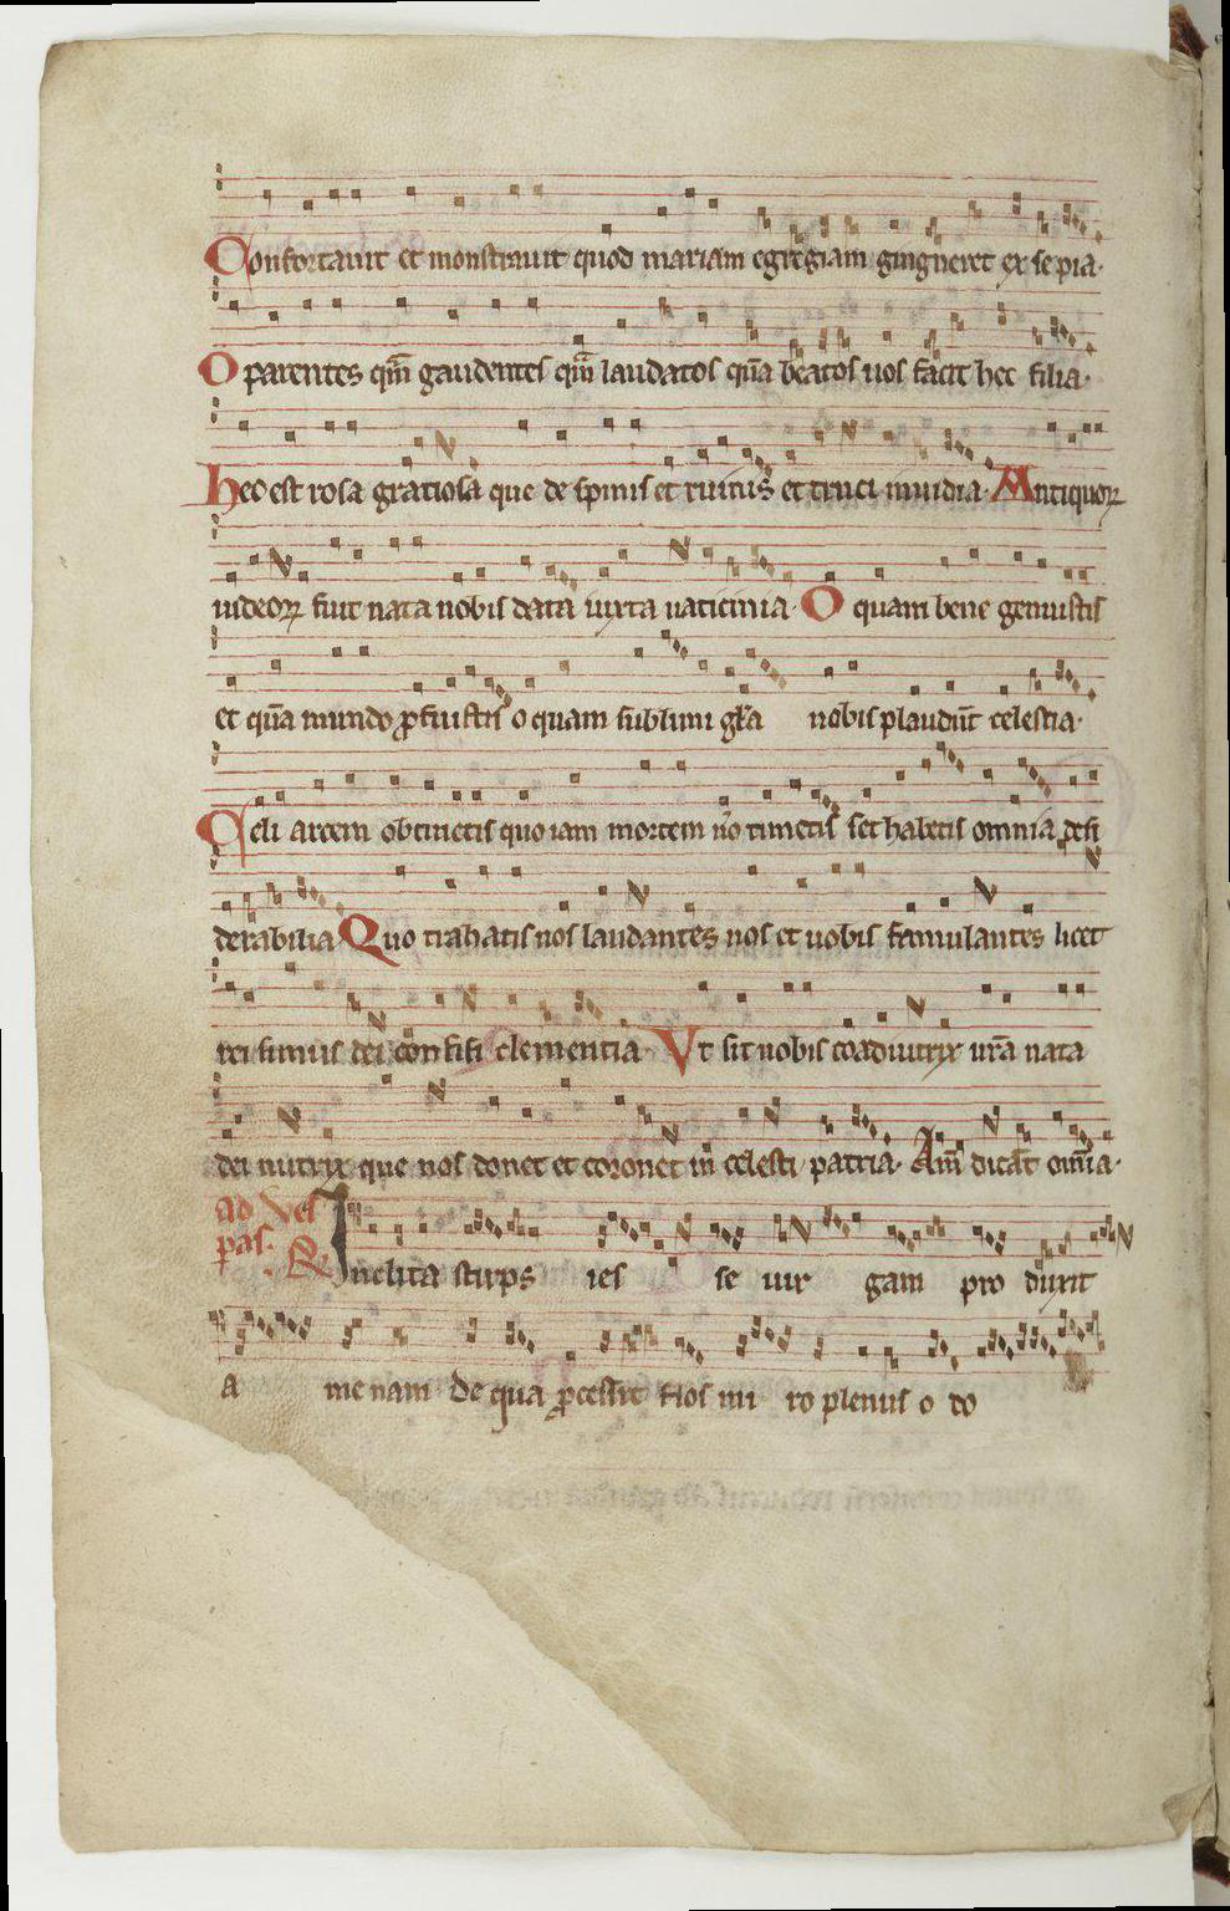 Confortauit et monstrauit quod mariam egregiam gingneret ex se pia·
O parentes qm̄ gaudentes qm̄ laudatos quā beatos uos facit hec filia·
Hec est rosa gratiosa que de spinis et ruinis et truci inuidia· Antiquoꝝ
iudeoꝝ fuit nata nobis data iuxta uaticinia· O quam bene genuistis
et quā mundo ꝓfuistis o quam sublimi gl̄a nobis plaudūt celestia·
Celi arcem obtinetis quo iam mortem nō timetis set habetis omnia desi
derabilia Quo trahatis nos laudantes uos et uobis famulantes licet
rei simus dei confisi clementia· Vt sit nobis coadiutrix urā nata
dei nutrix que nos donet et coronet in celesti patria· Am̄ dicāt om̄ia·
ad Ves
pas· R
Inclita stirps ies se uir gam pro duxit
a menam de qua ꝓcessit flos mi ro plenus o do